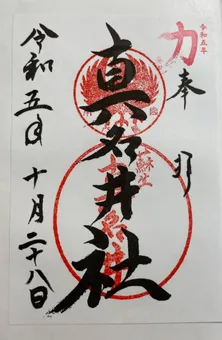 令和五年
力
奉拝
真名井社
令和五年十月二十八日